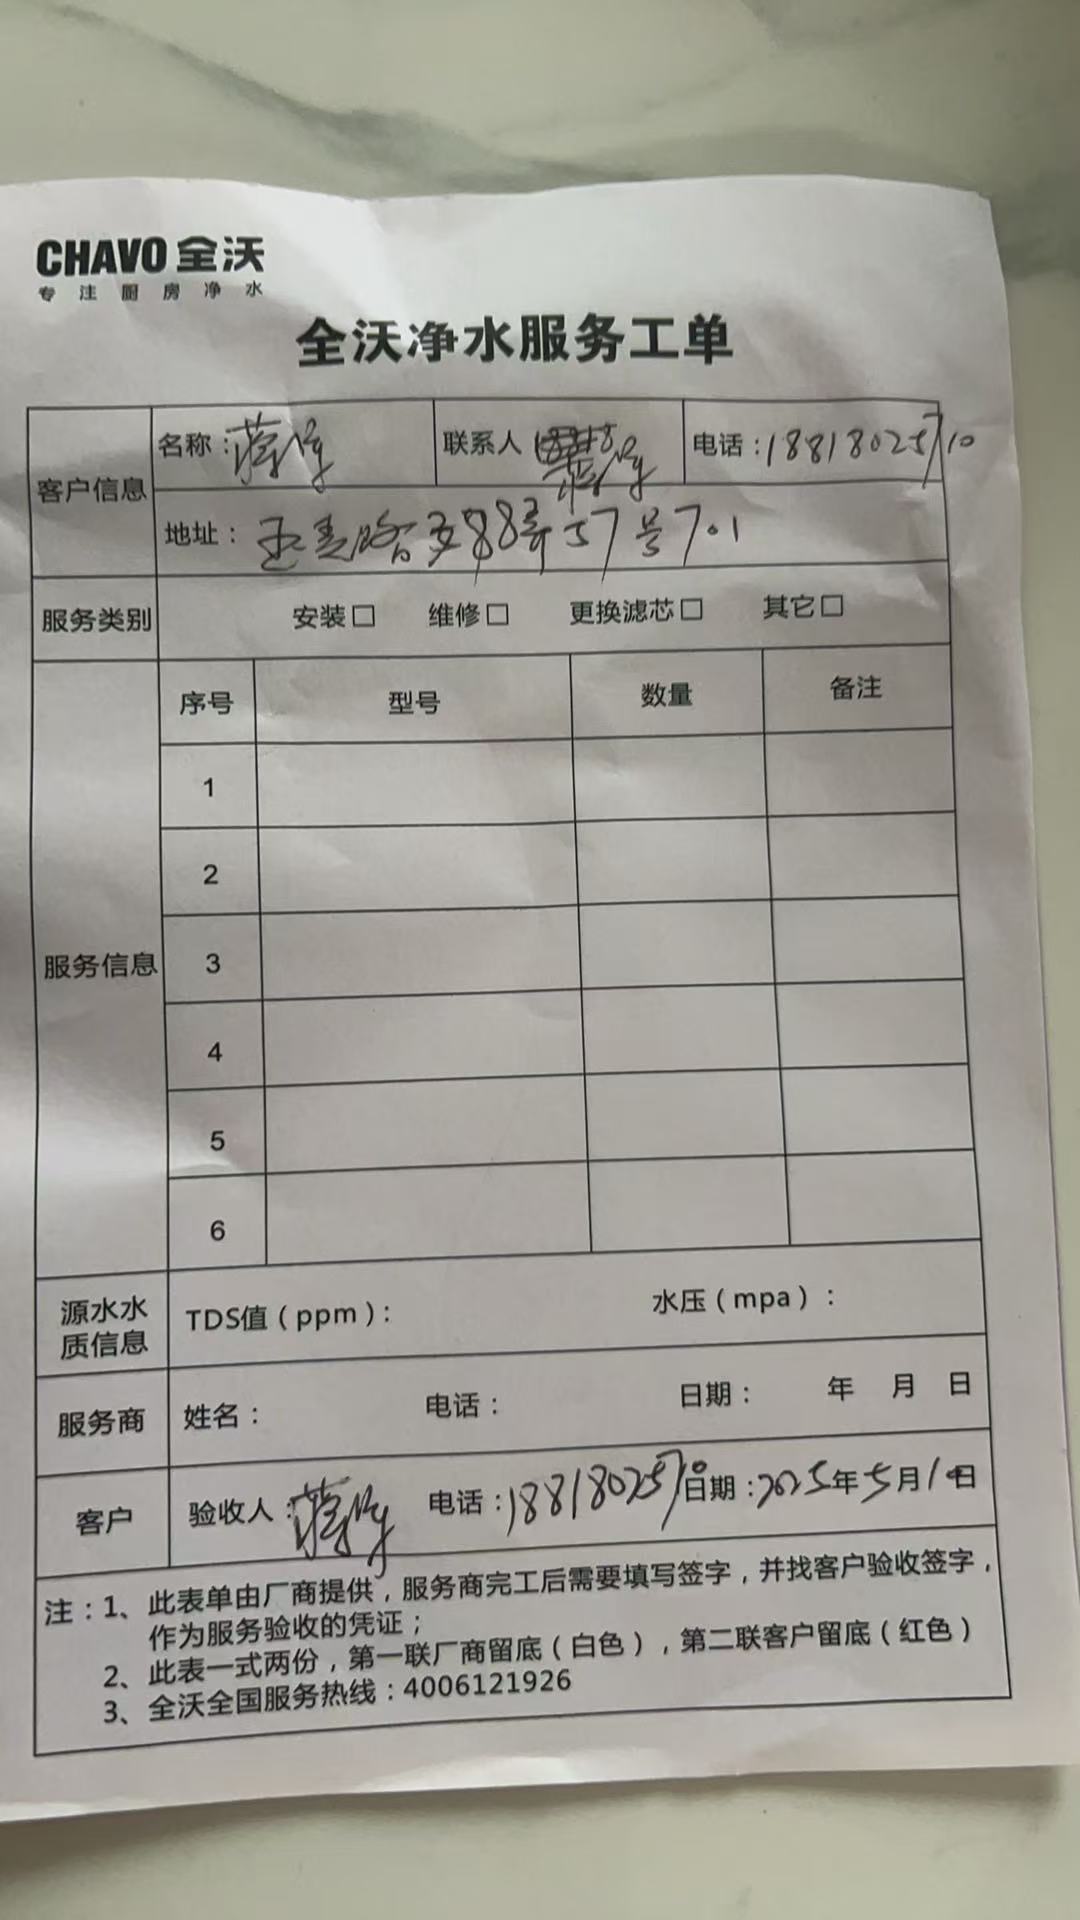 CHAVO 全沃
专注厨房净水
全沃净水服务工单
客户信息
名称：蒋
联系人
电话：18818025710
地址：路88弄57号701
服务类别
安装□ 维修□ 更换滤芯□ 其它□
服务信息
序号 型号 数量 备注
1
2
3
4
5
6
源水水质信息
TDS值（ppm）： 水压（mpa）：
服务商
姓名： 电话： 日期： 年 月 日
客户
验收人：蒋 电话：18818025710 日期：2025年5月1日
注：1、此表单由厂商提供，服务商完工后需要填写签字，并找客户验收签字，
作为服务验收的凭证；
2、此表一式两份，第一联厂商留底（白色），第二联客户留底（红色）
3、全沃全国服务热线：4006121926